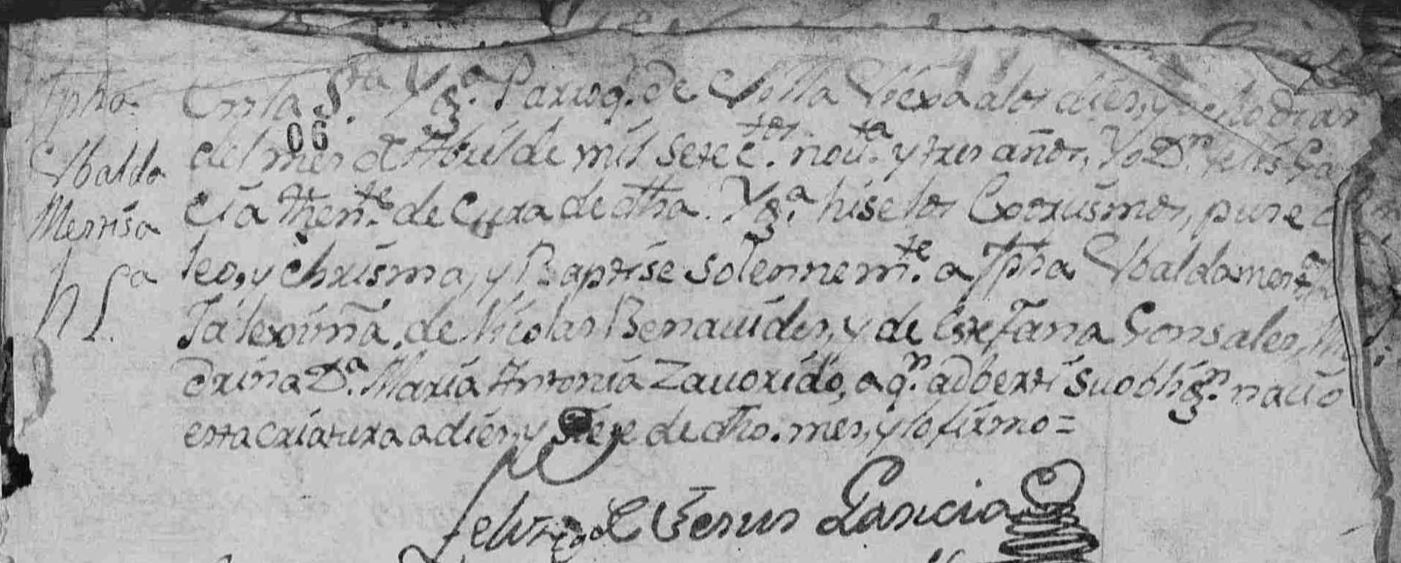 Jpha
Ubalda
Mestisa
h Lª
06
En la Sta Ygª Parroq. de Villa Vieja a los dies, y ocho dias
del mes de Abril de mil setectos. novta. y tres años, Yo Dn. Felis Gar
cia thente. de Cura de dha. Ygª. hise los Exorcismos, puse o
leo, y chrisma, y Baptise solennemte. a Jpha Ubalda mesti
sa lexima. de Nicolas Benauides, y de Estefana Gonsales, Ma
drina Da. Maria Antonia Zauorido, a qn. adberti su obligon. nacio
esta criatura a dies, y siete de dho. mes, y lo firmo=
Felis de Jesus Garicia